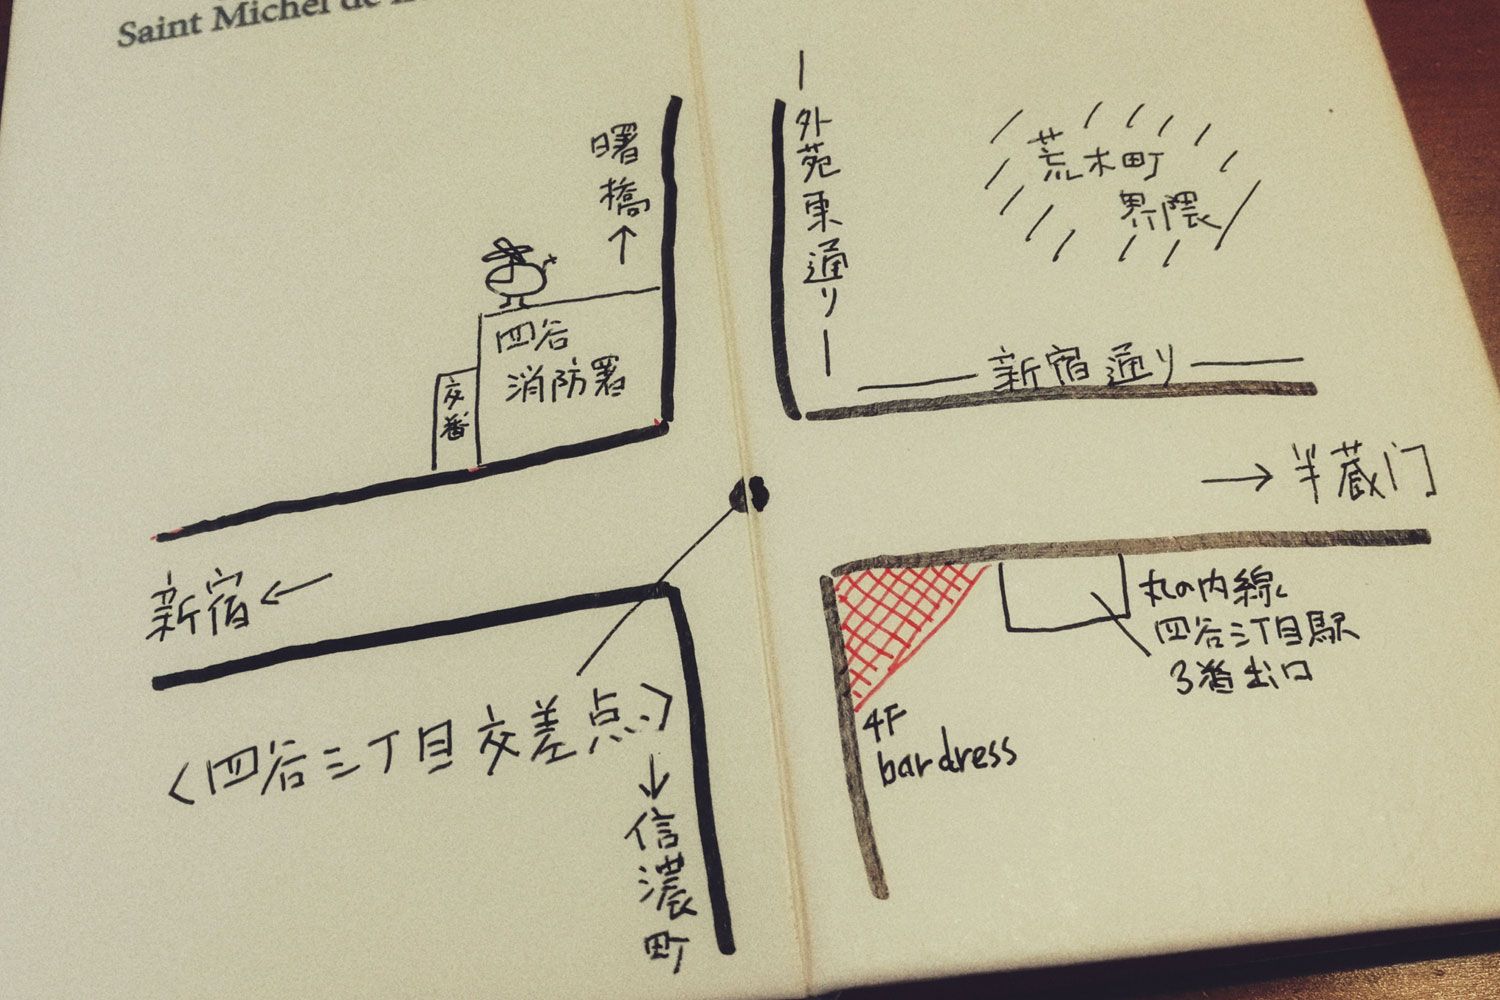 Saint Michel de
曙橋↑
四谷
消防署
交番
外苑東通り
荒木町
界隈
新宿通り
→半蔵門
新宿←
<四谷三丁目交差点>
↓信濃町
丸の内線
四谷三丁目駅
3番出口
4F
bar dress